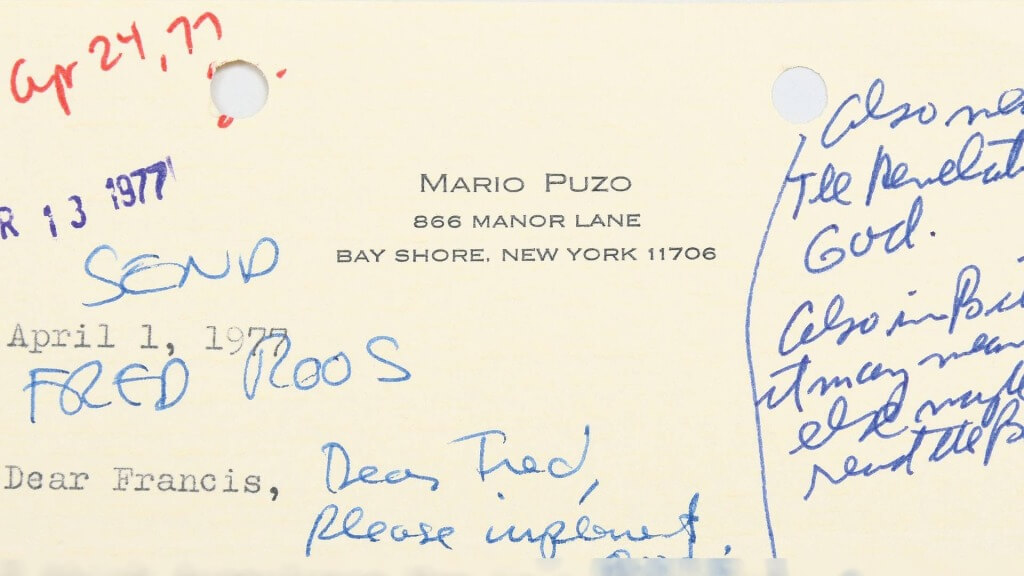 Apr 24, 77
R 13 1977
MARIO PUZO
866 MANOR LANE
BAY SHORE, NEW YORK 11706
SEND
April 1, 1977
FRED ROOS
Dear Francis,
Dear Fred,
please inplement
Also
The
God.
Also in
it may mean
else
read the B